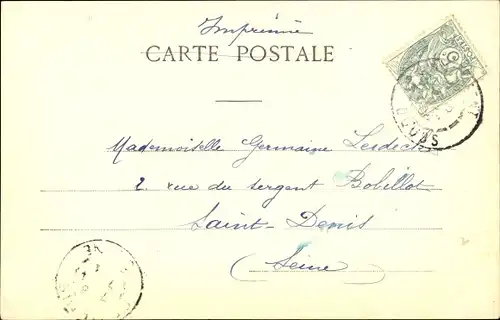 Imprimé
CARTE POSTALE
Mademoiselle Germaine
2. rue du sergent Bobillot
Saint-Denis
(Seine)
5
DOUBS